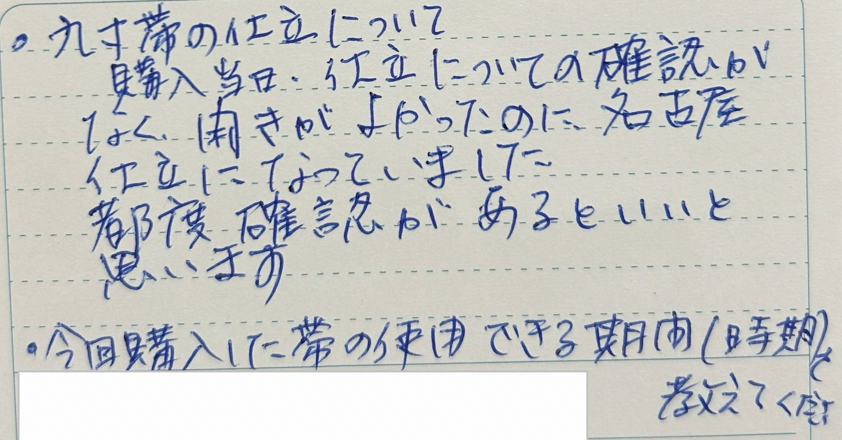 ・九寸帯の仕立について
購入当日、仕立についての確認が
なく、開きがよかったのに、名古屋
仕立になっていました
都度確認があるといいと
思います
・今回購入した帯の使用できる期間(時期)を
教えてくださ